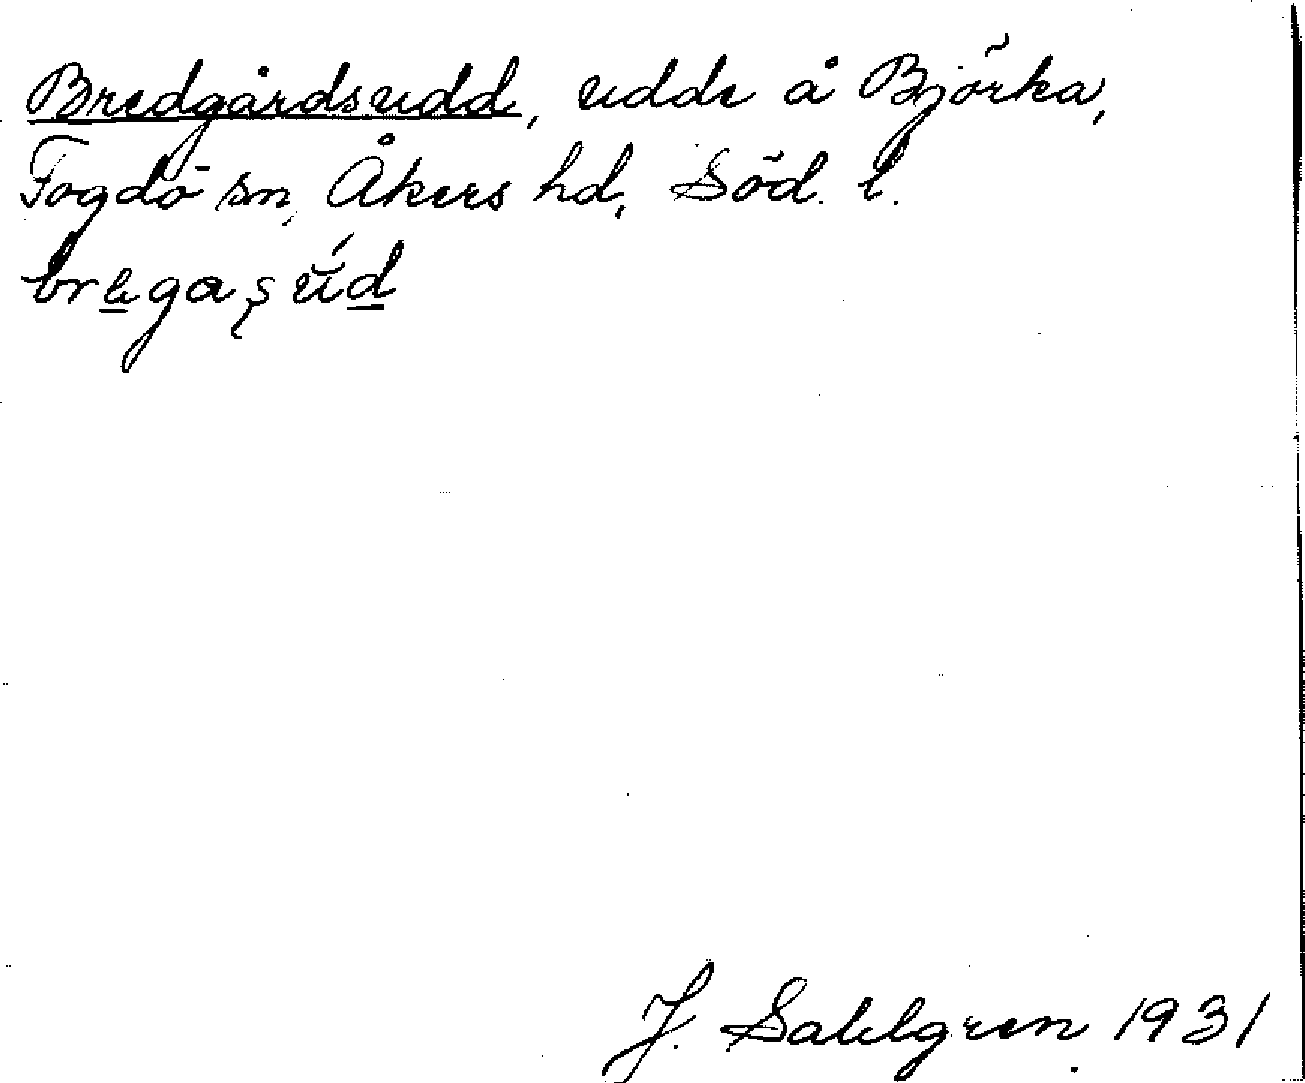 Bredgårdsudd, udde å Björka,
Fogdö sn, Åkers hd, Söd. l.
bregaşúd
J. Sahlgren 1931